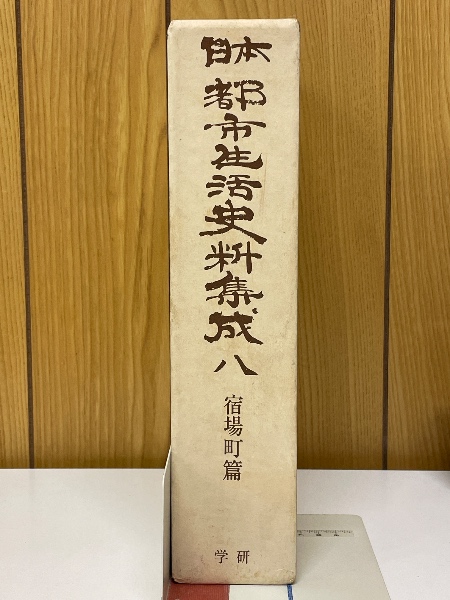 日本
都市生活史料集成 八
宿場町篇
学研